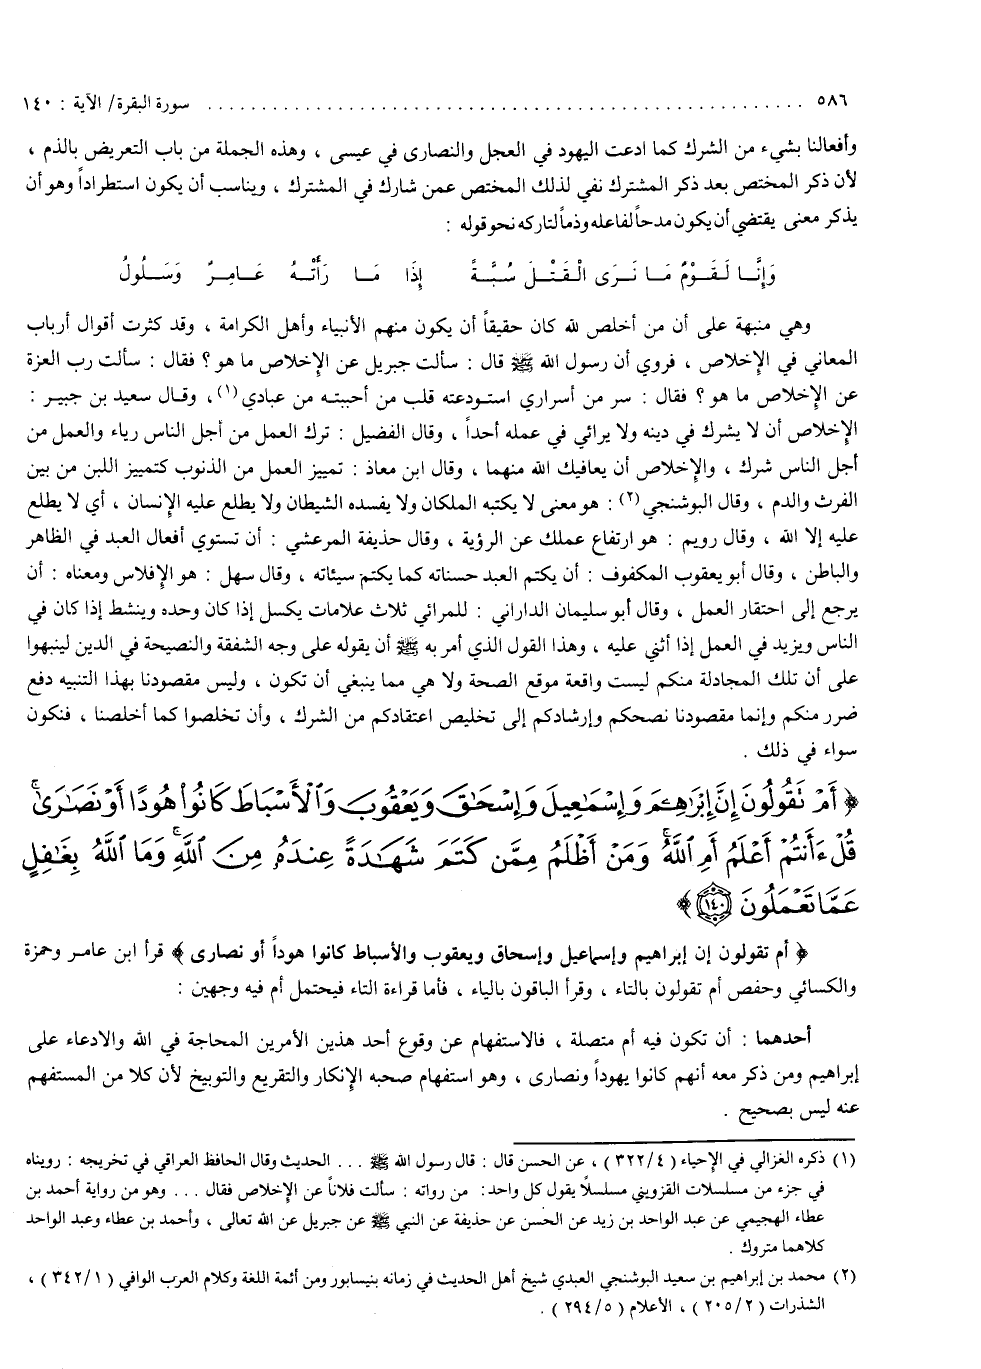 ٥٨٦ ............................................................ سورة البقرة/ الآية : ١٤٠
وأفعالنا بشيء من الشرك كما ادعت اليهود في العجل والنصارى في عيسى ، وهذه الجملة من باب التعريض بالذم ،
لأن ذكر المختص بعد ذكر المشترك نفي لذلك المختص عمن شارك في المشترك ، ويناسب أن يكون استطراداً وهو أن
يذكر معنى يقتضي أن يكون مدحاً لفاعله وذماً لتاركه نحو قوله :
وَإِنَّا لَقَوْمٌ مَا نَرَى الْقَتْلَ سُبَّةً إِذَا مَا رَأَتْهُ عَامِرٌ وَسَلُولُ
وهي منبهة على أن من أخلص لله كان حقيقاً أن يكون منهم الأنبياء وأهل الكرامة ، وقد كثرت أقوال أرباب
المعاني في الإِخلاص ، فروي أن رسول الله ﷺ قال : سألت جبريل عن الإِخلاص ما هو ؟ فقال : سألت رب العزة
عن الإِخلاص ما هو ؟ فقال : سر من أسراري استودعته قلب من أحببته من عبادي (١) ، وقال سعيد بن جبير :
الإِخلاص أن لا يشرك في دينه ولا يرائي في عمله أحداً ، وقال الفضيل : ترك العمل من أجل الناس رياء والعمل من
أجل الناس شرك ، والإِخلاص أن يعافيك الله منهما ، وقال ابن معاذ : تمييز العمل من الذنوب كتمييز اللبن من بين
الفرث والدم ، وقال البوشنجي (٢) : هو معنى لا يكتبه الملكان ولا يفسده الشيطان ولا يطلع عليه الإِنسان ، أي لا يطلع
عليه إلا الله ، وقال رويم : هو ارتفاع عملك عن الرؤية ، وقال حذيفة المرعشي : أن تستوي أفعال العبد في الظاهر
والباطن ، وقال أبو يعقوب المكفوف : أن يكتم العبد حسناته كما يكتم سيئاته ، وقال سهل : هو الإِفلاس ومعناه : أن
يرجع إلى احتقار العمل ، وقال أبو سليمان الداراني : للمرائي ثلاث علامات يكسل إذا كان وحده وينشط إذا كان في
الناس ويزيد في العمل إذا أثني عليه ، وهذا القول الذي أمر به ﷺ أن يقوله على وجه الشفقة والنصيحة في الدين لينبهوا
على أن تلك المجادلة منكم ليست واقعة موقع الصحة ولا هي مما ينبغي أن تكون ، وليس مقصودنا بهذا التنبيه دفع
ضرر منكم وإنما مقصودنا نصحكم وإرشادكم إلى تخليص اعتقادكم من الشرك ، وأن تخلصوا كما أخلصنا ، فنكون
سواء في ذلك .
﴿ أَمۡ تَقُولُونَ إِنَّ إِبۡرَٰهِـۧمَ وَإِسۡمَٰعِيلَ وَإِسۡحَٰقَ وَيَعۡقُوبَ وَٱلۡأَسۡبَاطَ كَانُواْ هُودًا أَوۡ نَصَٰرَىٰۗ
قُلۡ ءَأَنتُمۡ أَعۡلَمُ أَمِ ٱللَّهُۗ وَمَنۡ أَظۡلَمُ مِمَّن كَتَمَ شَهَٰدَةً عِندَهُۥ مِنَ ٱللَّهِۗ وَمَا ٱللَّهُ بِغَٰفِلٍ
عَمَّا تَعۡمَلُونَ ١٤٠ ﴾
﴿ أم تقولون إن إبراهيم وإسماعيل وإسحاق ويعقوب والأسباط كانوا هوداً أو نصارى ﴾ قرأ ابن عامر وحمزة
والكسائي وحفص أم تقولون بالتاء ، وقرأ الباقون بالياء ، فأما قراءة التاء فيحتمل أم فيه وجهين :
أحدهما : أن تكون فيه أم متصلة ، فالاستفهام عن وقوع أحد هذين الأمرين المحاجة في الله والادعاء على
إبراهيم ومن ذكر معه أنهم كانوا يهوداً ونصارى ، وهو استفهام صحبه الإِنكار والتقريع والتوبيخ لأن كلا من المستفهم
عنه ليس بصحيح .
(١) ذكره الغزالي في الإحياء ( ٣٢٢/٤ ) ، عن الحسن قال : قال رسول الله ﷺ ... الحديث وقال الحافظ العراقي في تخريجه : رويناه
في جزء من مسلسلات القزويني مسلسلاً يقول كل واحد: من رواته : سألت فلاناً عن الإِخلاص فقال ... وهو من رواية أحمد بن
عطاء الهجيمي عن عبد الواحد بن زيد عن الحسن عن حذيفة عن النبي ﷺ عن جبريل عن الله تعالى ، وأحمد بن عطاء وعبد الواحد
كلاهما متروك .
(٢) محمد بن إبراهيم بن سعيد البوشنجي العبدي شيخ أهل الحديث في زمانه بنيسابور ومن أئمة اللغة وكلام العرب الوافي ( ٣٤٢/١ ) ،
الشذرات ( ٢٠٥/٢ ) ، الأعلام ( ٢٩٤/٥ ) .